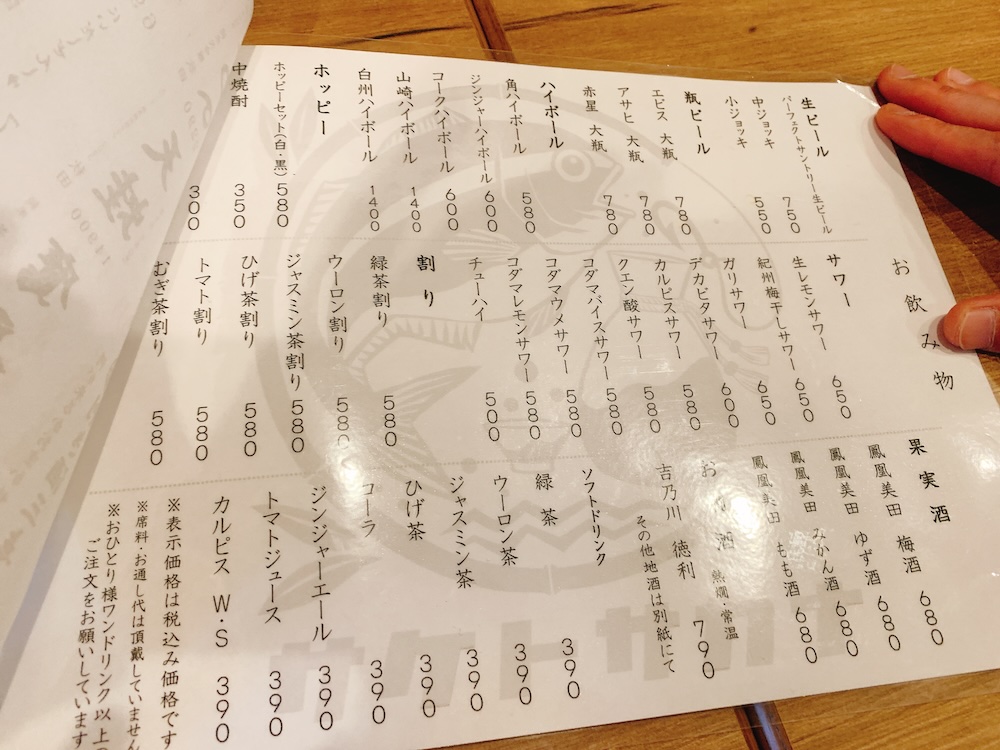 お飲み物
生ビール
パーフェクトサントリー生ビール
中ジョッキ 750
小ジョッキ 550
瓶ビール
エビス 大瓶 780
アサヒ 大瓶 780
赤星 大瓶 780
ハイボール
角ハイボール 580
ジンジャーハイボール 600
コークハイボール 600
山崎ハイボール 1400
白州ハイボール 1400
ホッピー
ホッピーセット(白・黒) 580
中焼酎 350
300
サワー
生レモンサワー 650
紀州梅干しサワー 650
ガリサワー 650
デカビタサワー 600
カルピスサワー 580
クエン酸サワー 580
コダマバイスサワー 580
コダマウメサワー 580
コダマレモンサワー 580
チューハイ 500
割り
緑茶割り 580
ウーロン割り 580
ジャスミン茶割り 580
ひげ茶割り 580
トマト割り 580
むぎ茶割り 580
果実酒
鳳凰美田 梅酒 680
鳳凰美田 ゆず酒 680
鳳凰美田 みかん酒 680
鳳凰美田 もも酒 680
お 酒 熱燗・常温
吉乃川 徳利 790
その他地酒は別紙にて
ソフトドリンク
緑茶 390
ウーロン茶 390
ジャスミン茶 390
ひげ茶 390
コーラ 390
ジンジャーエール 390
トマトジュース 390
カルピス W・S 390
※表示価格は税込み価格です
※席料・お通し代は頂戴していません
※おひとり様ワンドリンク以上の
ご注文をお願いしています